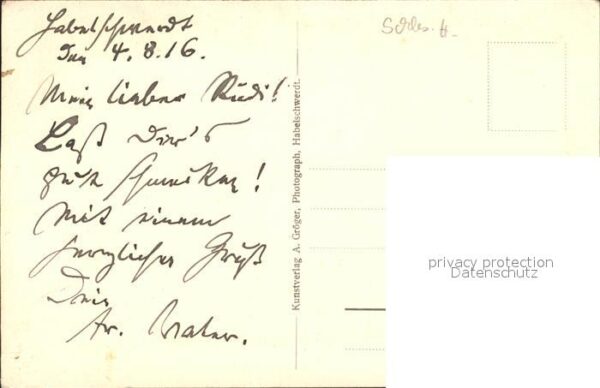 Habelschwerdt
den 4.8.16.
Mein lieber Rudi!
Laß Dir's
gut schmecken!
Mit einem
herzlichen Gruß
Dein
Vater.
Schles. H.
Kunstverlag A. Gröger, Photograph, Habelschwerdt.
privacy protection
Datenschutz